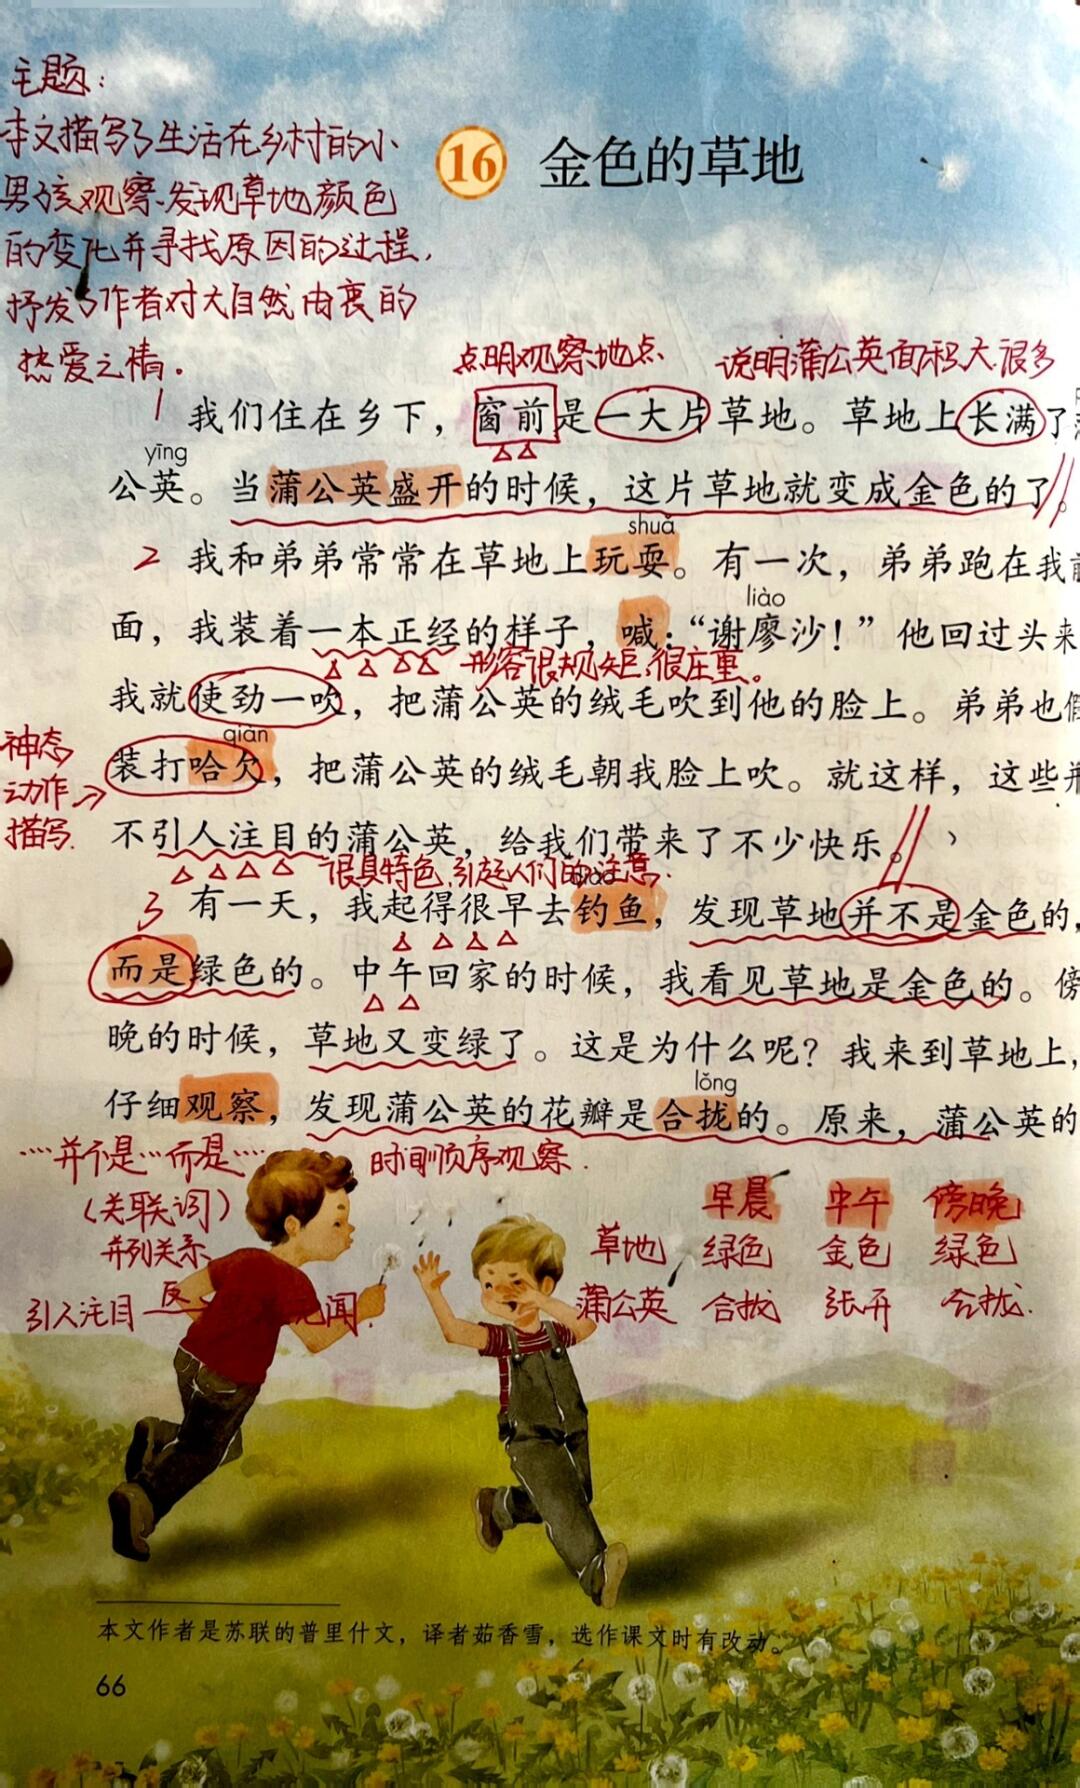 主题：
本文描写了生活在乡村的小
男孩观察、发现草地颜色
的变化并寻找原因的过程，
抒发了作者对大自然由衷的
热爱之情。
16 金色的草地
点明观察地点 说明蒲公英面积大、很多
1 我们住在乡下，窗前是一大片草地。草地上长满了
yīng
公英。当蒲公英盛开的时候，这片草地就变成金色的了。
shuǎ
2 我和弟弟常常在草地上玩耍。有一次，弟弟跑在我
liào
面，我装着一本正经的样子，喊：“谢廖沙！”他回过头来
形容很规矩，很庄重。
我就使劲一吹，把蒲公英的绒毛吹到他的脸上。弟弟也
qiàn
神态
动作
描写
装打哈欠，把蒲公英的绒毛朝我脸上吹。就这样，这些
不引人注目的蒲公英，给我们带来了不少快乐。
很具特色，引起人们的注意。
diào
3 有一天，我起得很早去钓鱼，发现草地并不是金色的，
而是绿色的。中午回家的时候，我看见草地是金色的。傍
晚的时候，草地又变绿了。这是为什么呢？我来到草地上，
lǒng
仔细观察，发现蒲公英的花瓣是合拢的。原来，蒲公英的
……并不是…而是…… 时间顺序观察．
（关联词）
并列关系
引人注目 反 闻．
早晨 中午 傍晚
草地 绿色 金色 绿色
蒲公英 合拢 张开 合拢．
本文作者是苏联的普里什文，译者茹香雪，选作课文时有改动。
66